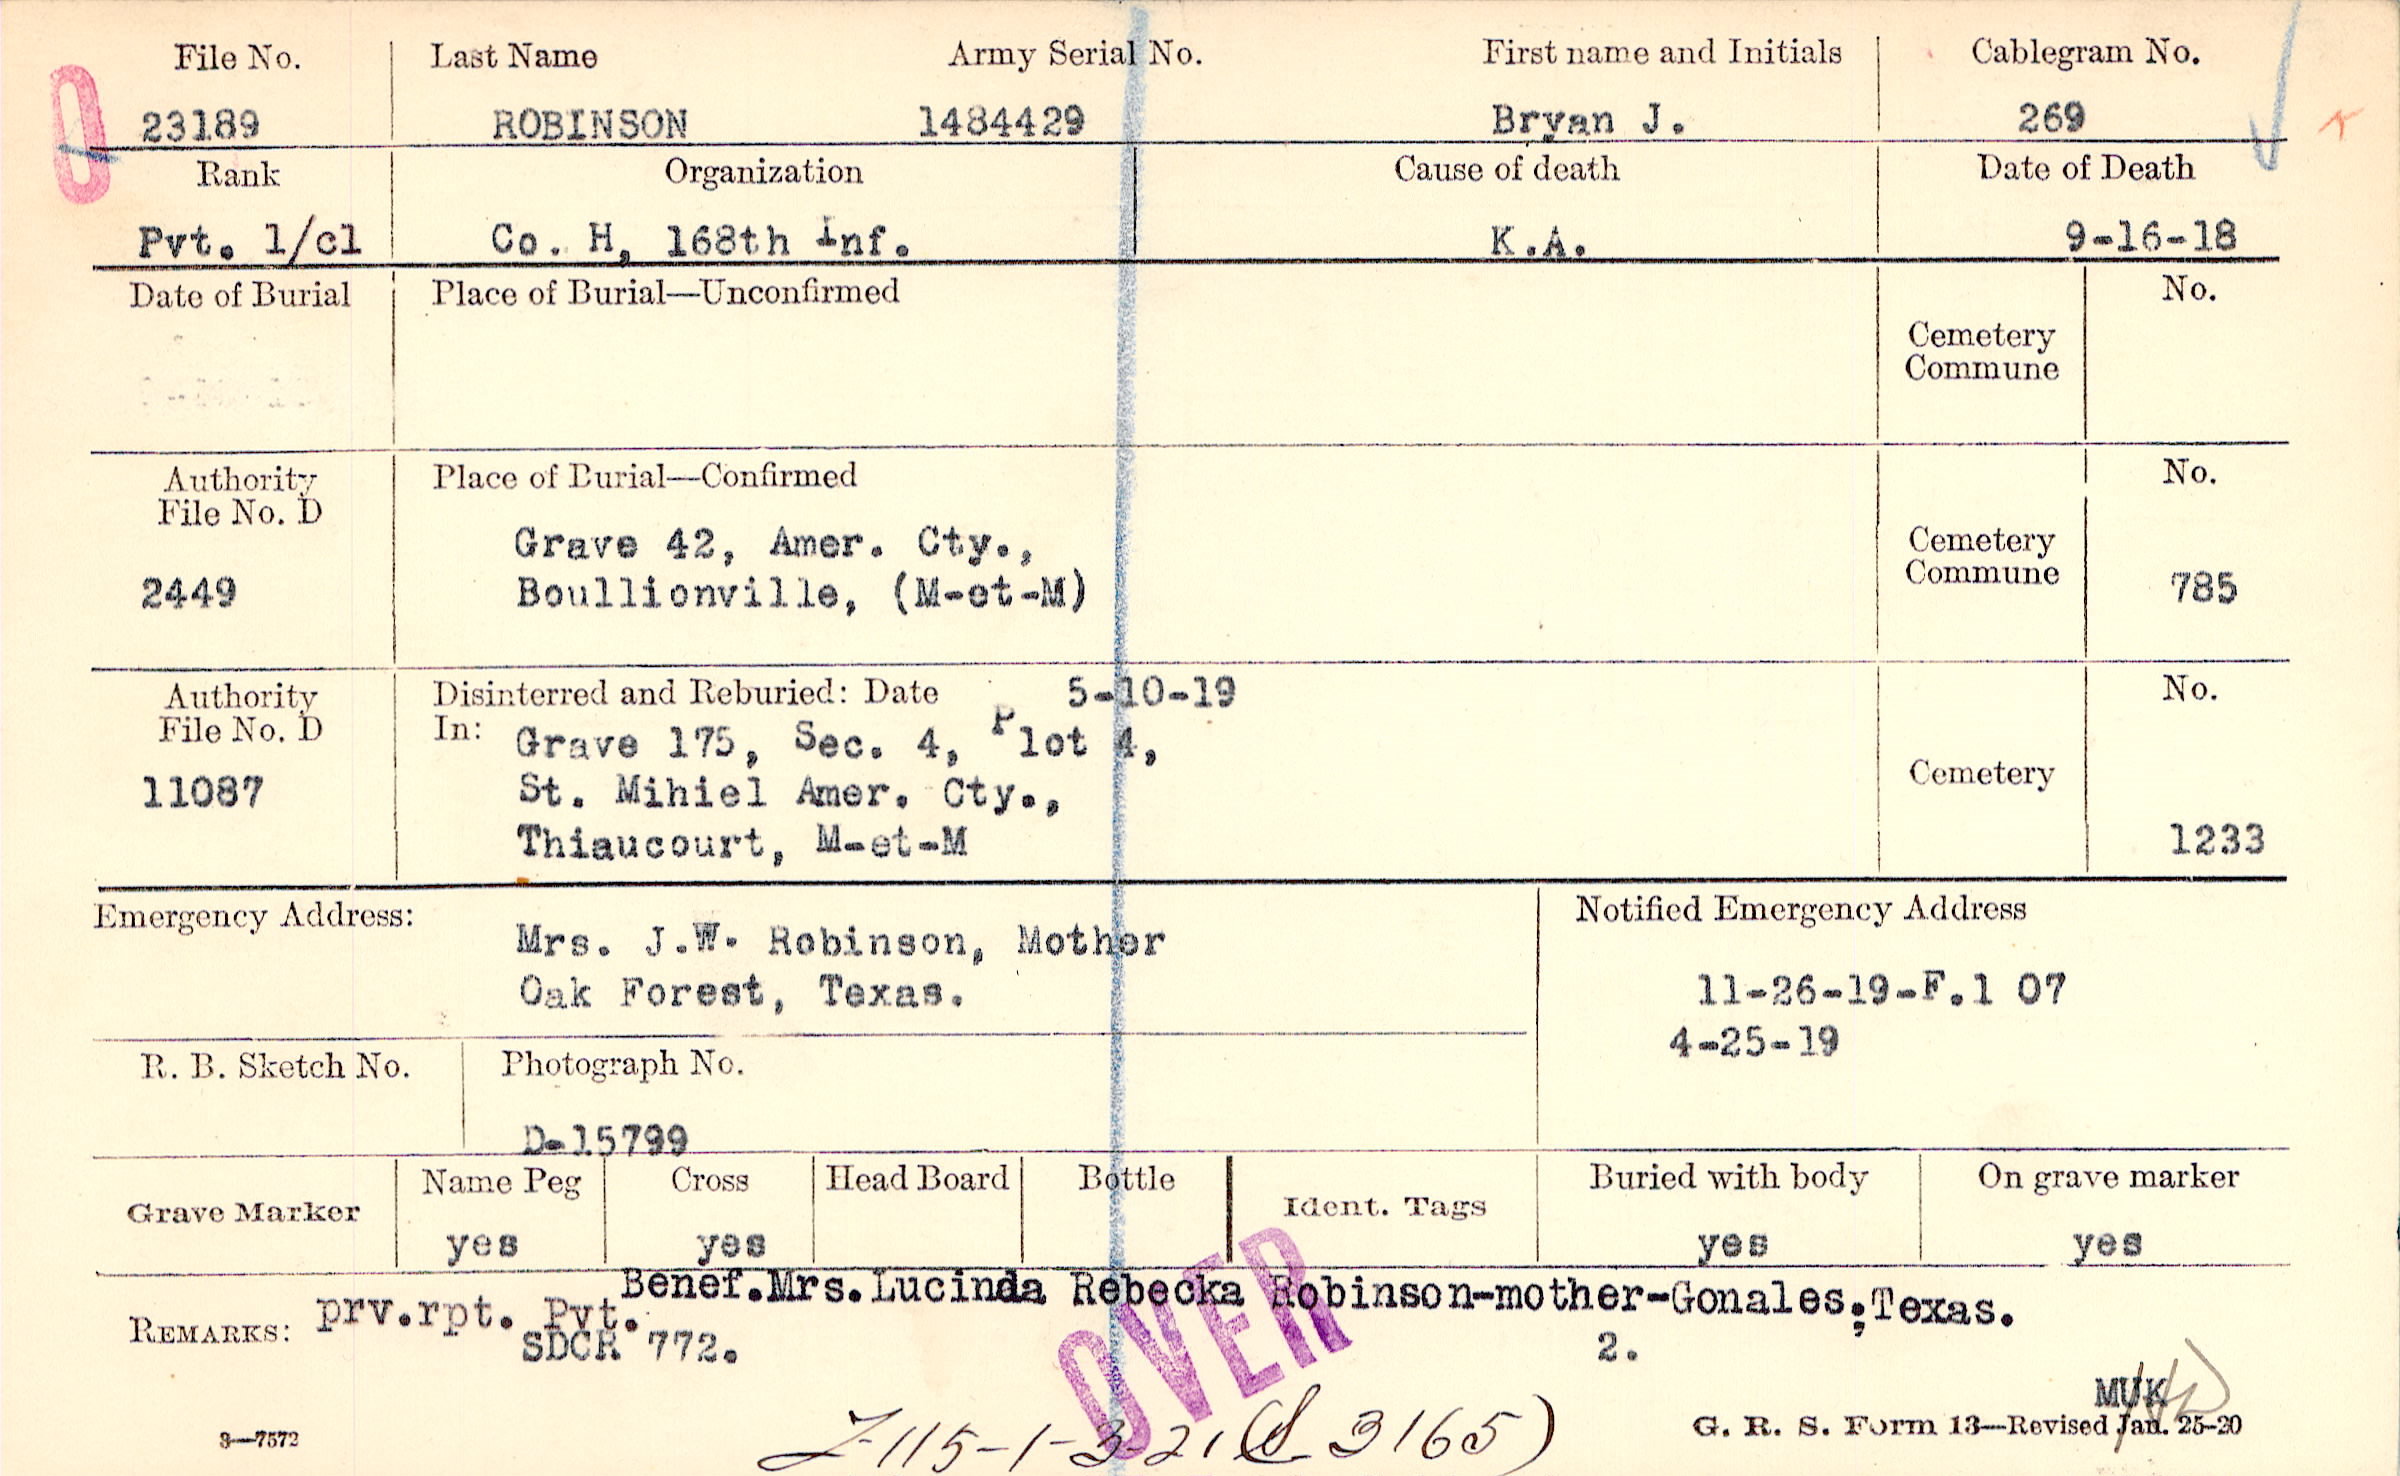 File No. Last Name Army Serial No. First name and Initials Cablegram No.
0
23189 ROBINSON 1484429 Bryan J. 269
Rank Organization Cause of death Date of Death
Pvt. 1/cl Co. H, 168th Inf. K.A. 9-16-18
Date of Burial Place of Burial—Unconfirmed No.
Cemetery
Commune
Authority Place of Burial—Confirmed No.
File No. D
Grave 42, Amer. Cty., Cemetery
2449 Boullionville, (M-et-M) Commune 785
Authority Disinterred and Reburied: Date 5-10-19 No.
File No. D In: Grave 175, Sec. 4, Plot 4,
11087 St. Mihiel Amer. Cty., Cemetery
Thiaucourt, M-et-M 1233
Emergency Address: Notified Emergency Address
Mrs. J.W. Robinson, Mother
Oak Forest, Texas. 11-26-19-F.1 07
4-25-19
R. B. Sketch No. Photograph No.
D-15799
Grave Marker Name Peg Cross Head Board Bottle Ident. Tags Buried with body On grave marker
yes yes yes yes
Benef.Mrs.Lucinda Rebecka Robinson-mother-Gonales,Texas.
REMARKS: prv.rpt. Pvt.
SDCR 772. 2.
OVER
MUK
Z-115-1-3-21 (S 3165)
3—7572 G. R. S. Form 13—Revised Jan. 25-20